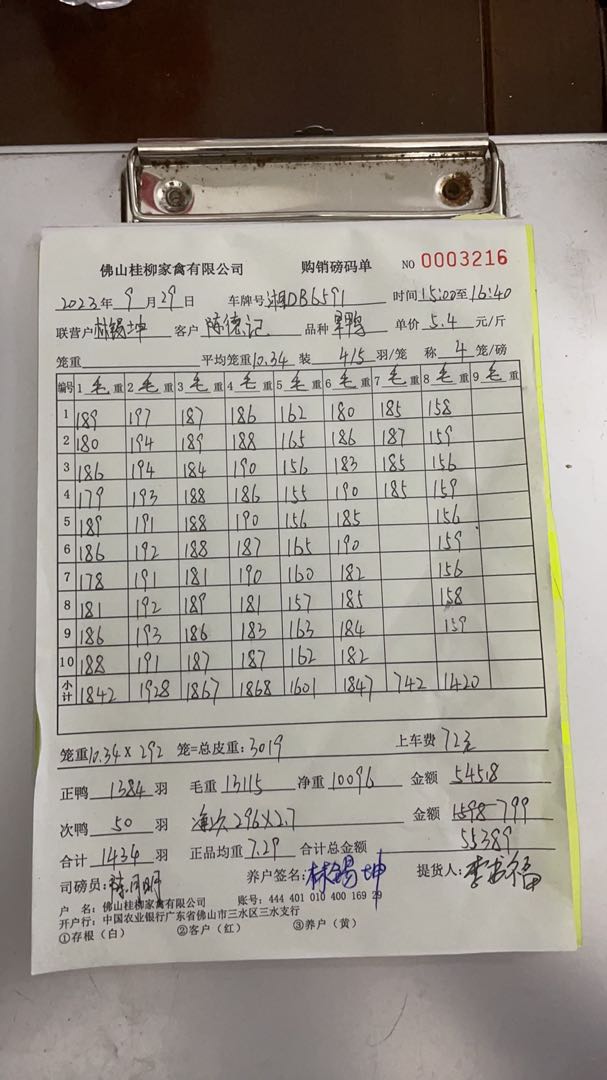 佛山桂柳家禽有限公司 购销磅码单 NO 0003216
2023年9月29日 车牌号湘DB6591 时间15:00至16:40
联营户林锡坤 客户 陈德记 品种 单价 5.4 元/斤
笼重 平均笼重10.34 装 4/5 羽/笼 称 4 笼/磅
编号 1 毛 重 2 毛 重 3 毛 重 4 毛 重 5 毛 重 6 毛 重 7 毛 重 8 毛 重 9 毛 重
1 189 197 187 186 162 180 185 158
2 180 194 189 188 165 186 187 159
3 186 194 184 190 156 183 185 156
4 179 193 188 186 155 190 185 159
5 189 191 188 190 156 185 156
6 186 192 188 187 165 190 159
7 178 191 181 190 160 182 156
8 181 192 189 181 157 185 158
9 186 193 186 183 163 184 159
10 188 191 187 187 162 182
小计 1842 1928 1867 1868 1601 1847 742 1420
笼重10.34×292 笼=总皮重:3019 上车费 72元
正鸭 1384 羽 毛重 13115 净重 10096 金额 54518
次鸭 50 羽 净次296×2.7 金额 1598-799
合计 1434 羽 正品均重 7.29 合计总金额 55389
司磅员: 养户签名:林锡坤 提货人:
户 名:佛山桂柳家禽有限公司 账号:444 401 010 400 169 29
开户行:中国农业银行广东省佛山市三水区三水支行
①存根（白） ②客户（红） ③养户（黄）